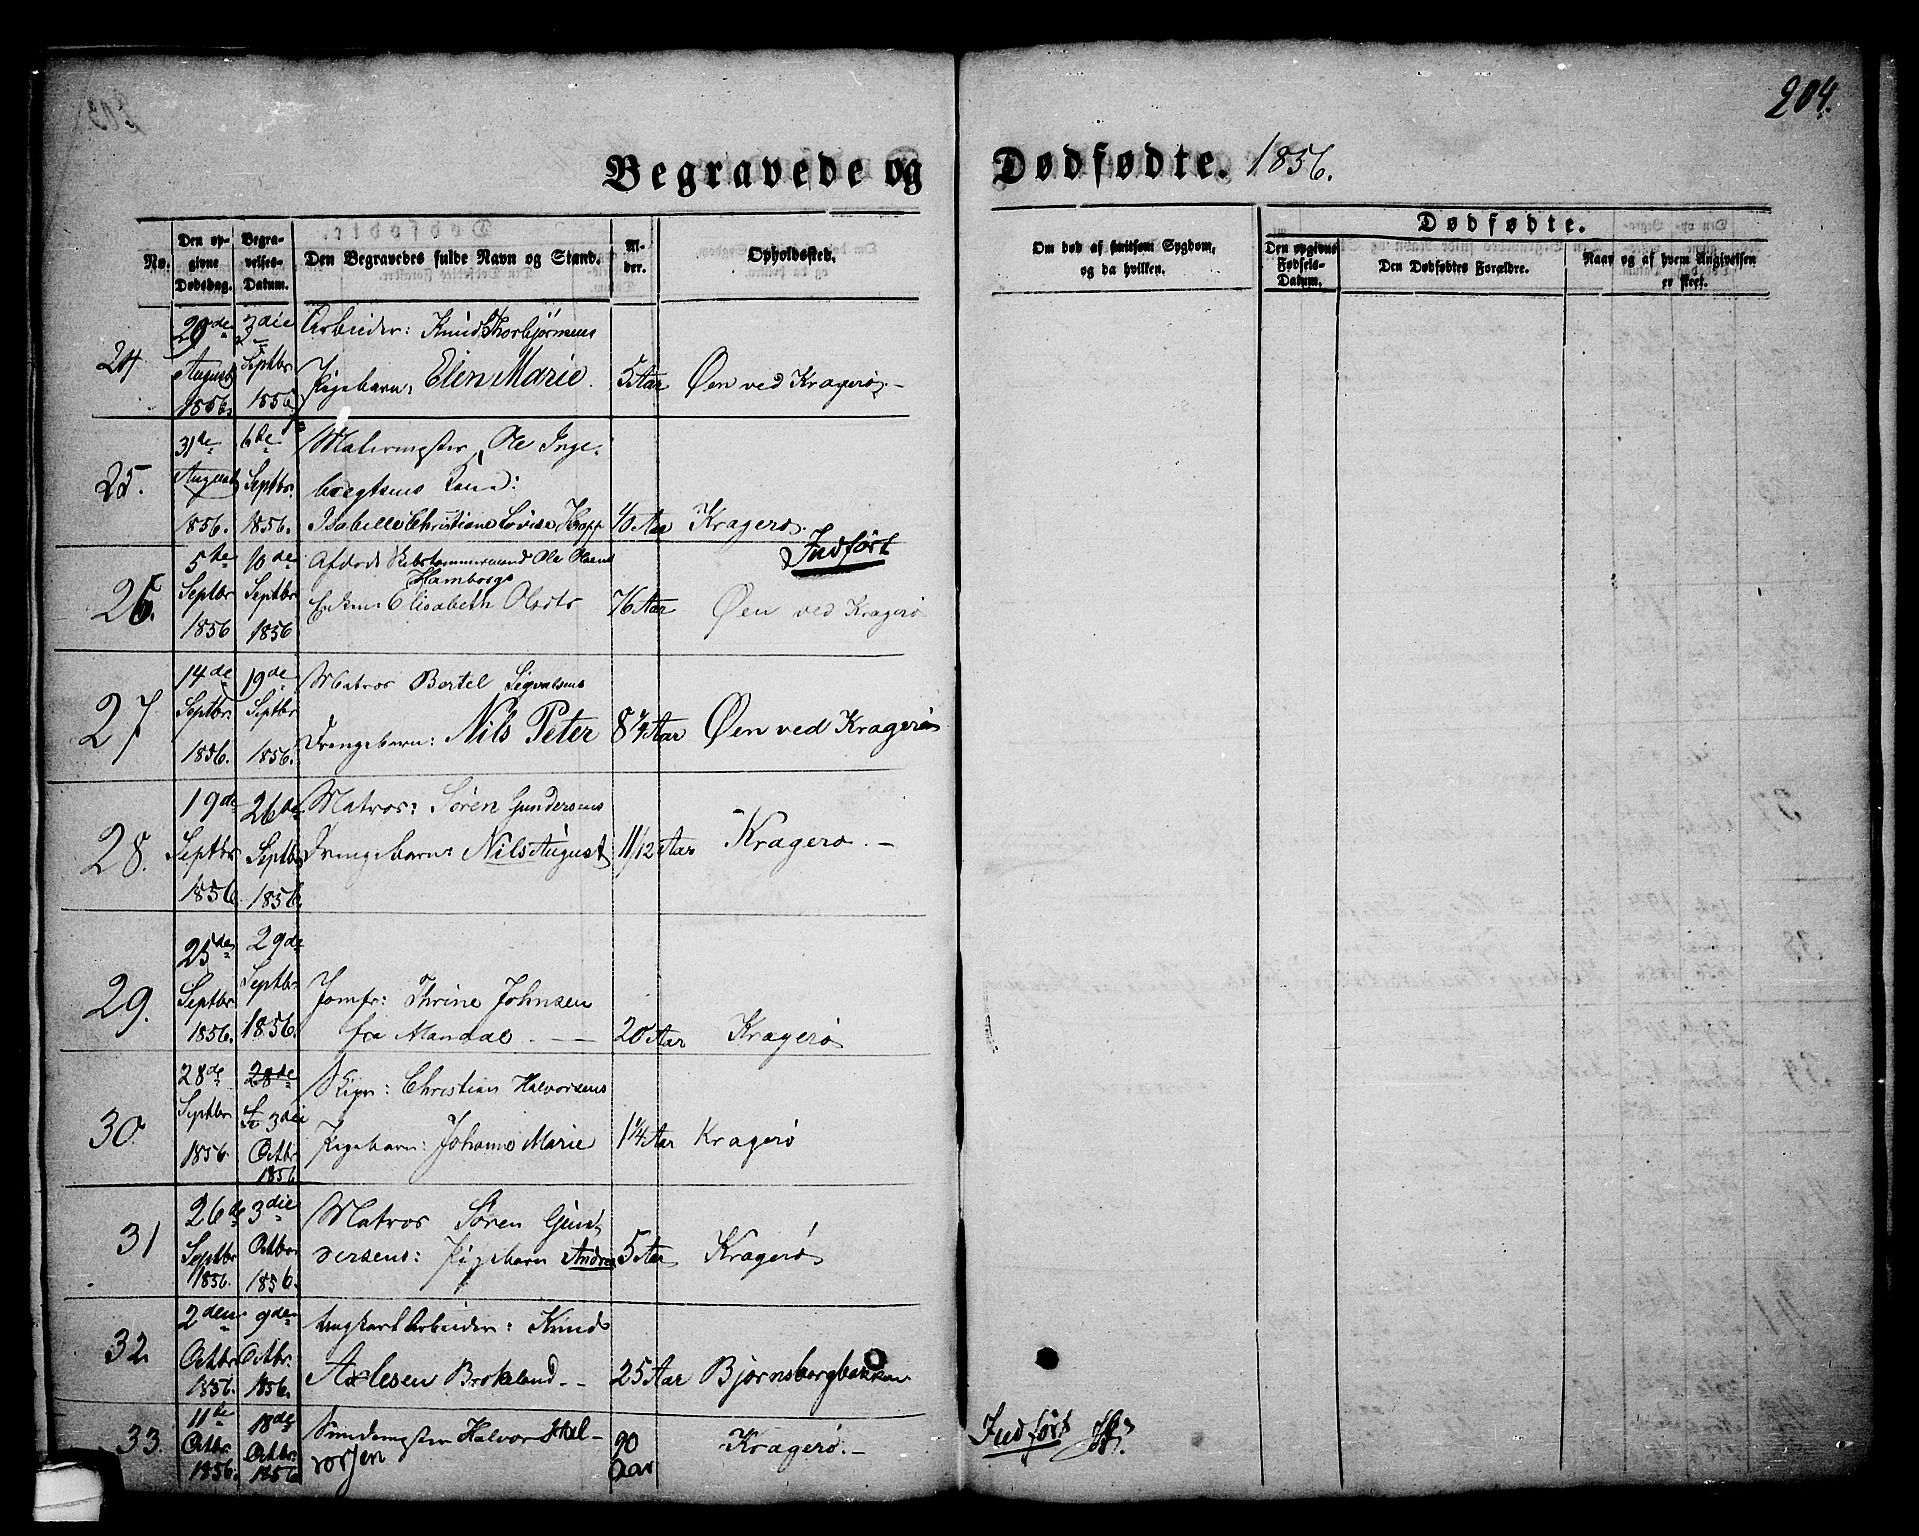 204.
Begravede og Dødfødte. 1856.
No.
Den op-
givne
Dødsdag.
Begra-
velses-
Datum.
Den Begravedes fulde Navn og Stand.
Al-
der.
Opholdssted.
Om død af smitsom Sygdom,
og da hvilken.
Dødfødte.
Den opgivne
Fødsels-
Datum.
Den Dødfødtes Forældre.
Naar og af hvem Angivelsen
er skeet.
24.
29de
August
1856.
3die
Septbr
1856
Arbeider: Knud Thorbjørnsens
Pigebarn: Elen Marie.
5 Aar
Øen ved Kragerø.-
25.
31te
August
1856.
6te
Septbr.
1856.
Malermester Ole Inge-
bregtsens Kone:
Isabelle Christiane Lovise Krapp
40 Aar
Kragerø.
Indført
26.
5te
Septbr
1856
10de
Septbr
1856
Afdøde Ole Olsens
Hamborgs
Enke Elisabeth Olsdtr
76 Aar
Øen ved Kragerø
27.
14de
Septbr.
1856.
19de
Septbr
1856.
Matros Bertel Sigvalsens
Drengebarn: Nils Peter
8 1/4 Aar
Øen ved Kragerø
28.
19de
Septbr
1856.
26de
Septbr
1856.
Matros: Søren Gundersens
Drengebarn: Nils August
11/12 Aar
Kragerø.-
29.
25de
Septbr
1856.
29de
Septbr.
1856.
Jomfr: Thrine Johnsen
fra Mandal. --
20 Aar
Kragerø
30
28de
Septbr
1856.
28de
3die
Octbr
1856
Skipr: Christian Halvorsens
Pigebarn: Johanne Marie
1 1/4 Aar
Kragerø
31
26de
Septbr
1856.
3die
Octbr
1856.
Matros Søren Gun-
dersens: Pigebarn Andrea
5 Aar
Kragerø
32.
2den
Octbr
1856.
9de
Octbr.
1856.
Ungkarl Arbeider: Knud
Axlesen Brokeland --
25 Aar
Bjørnsborgbakken
33.
11te
Octbr.
1856.
18de
Octbr.
1856
Smedmester Halvor Hal-
vorsen
90
Aar
Kragerø.-
Indført